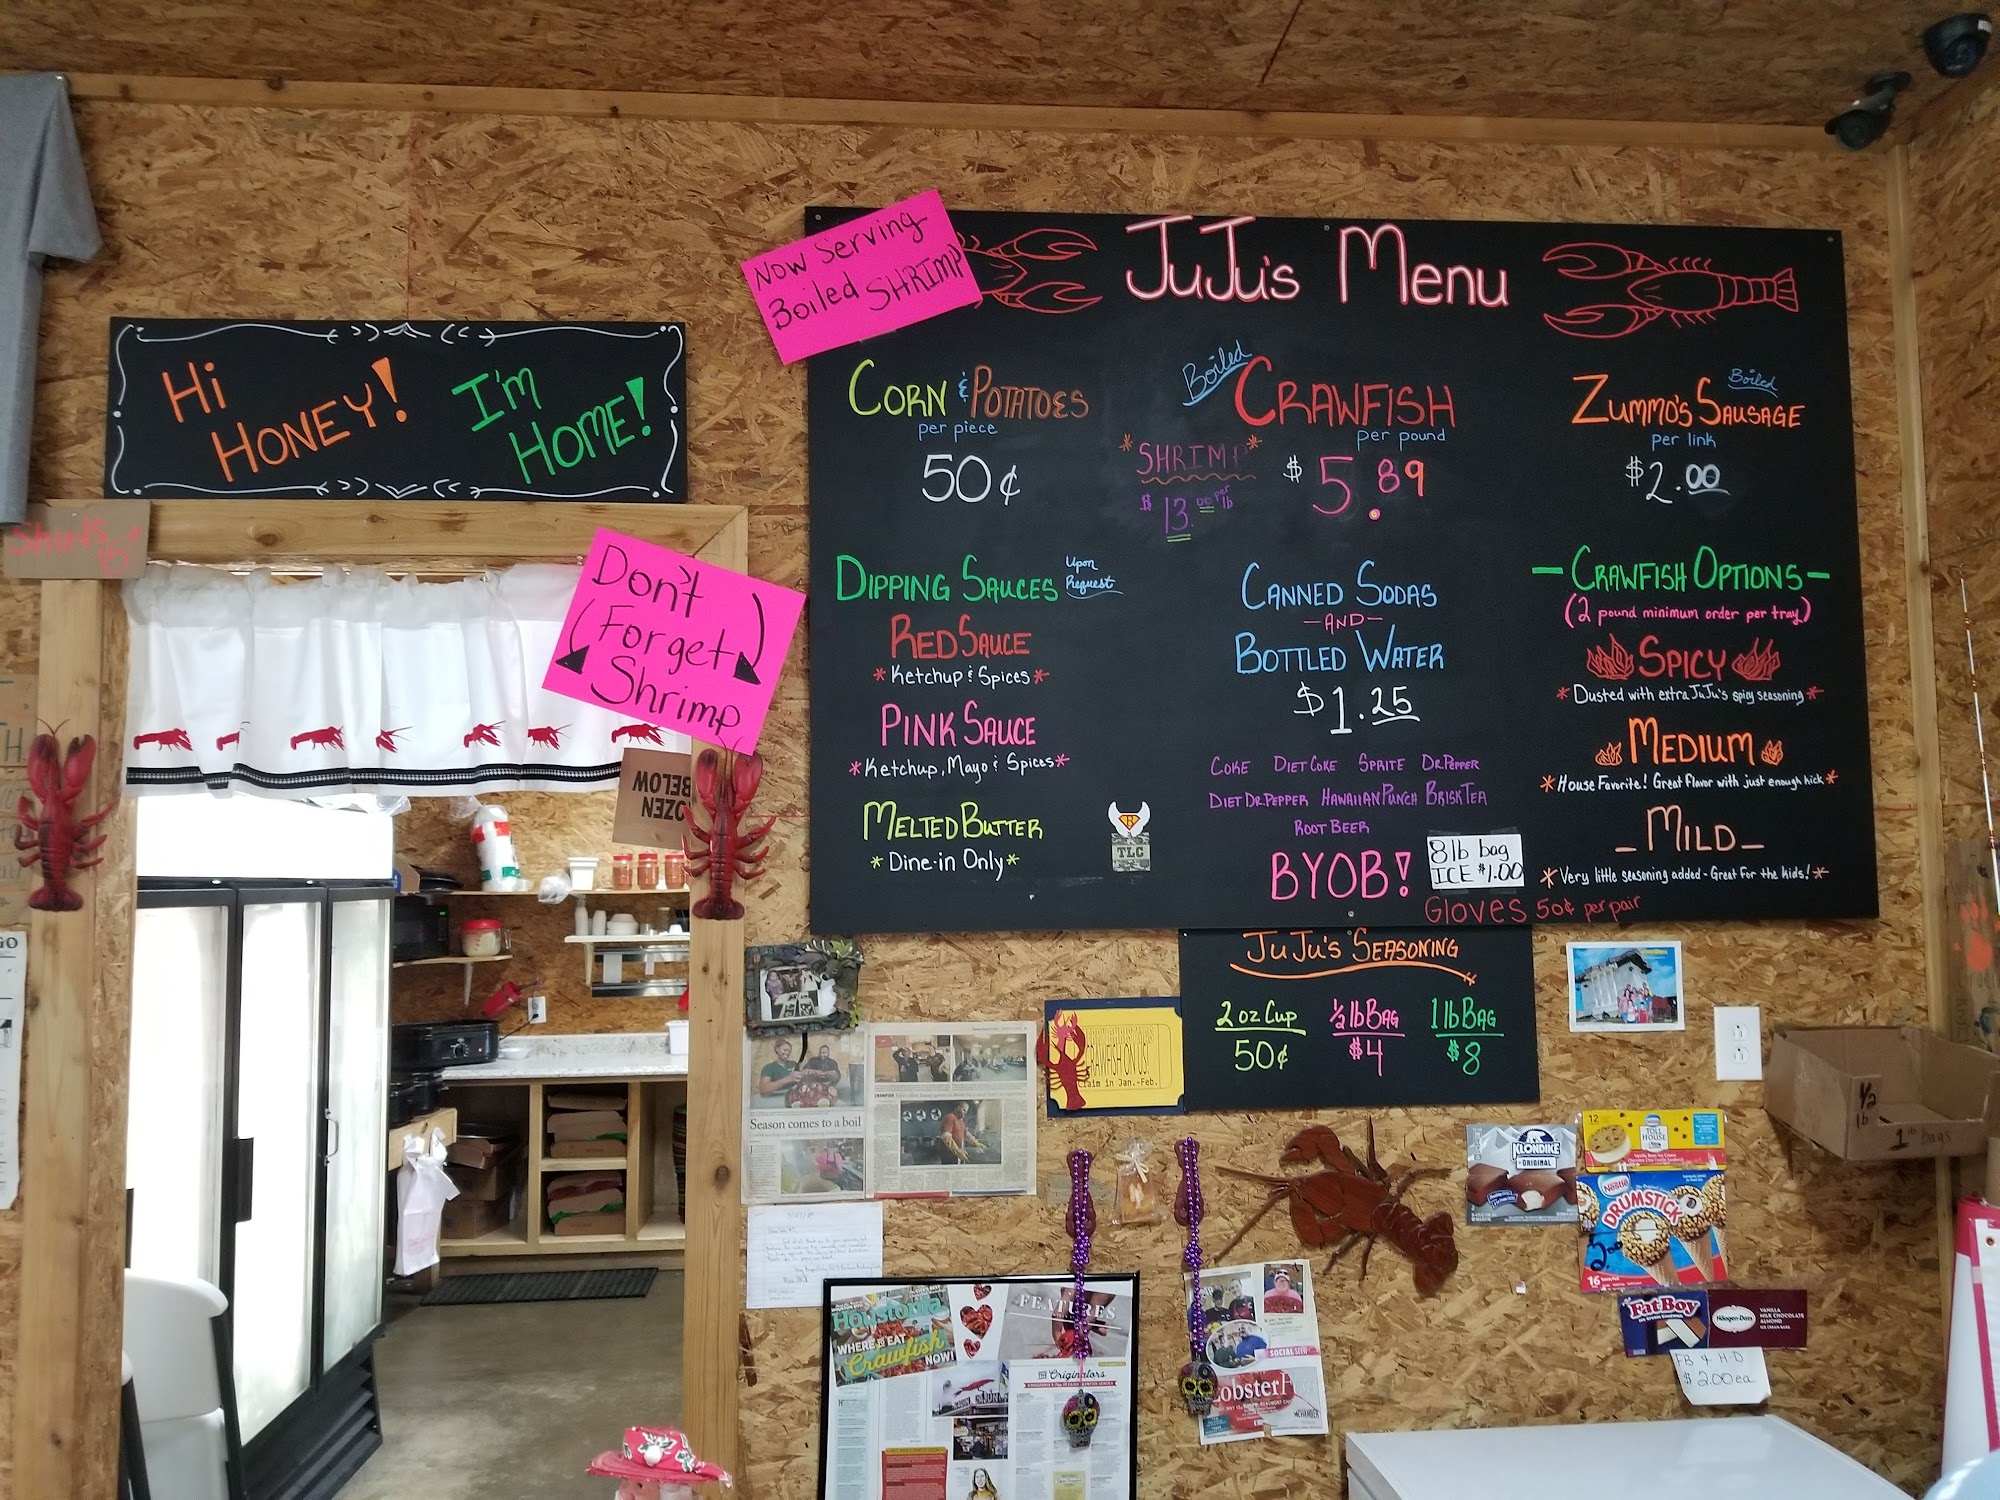 Hi
HONEY!
I'm
HOME!
Shirts
Now Serving
Boiled SHRIMP
Don't
Forget
Shrimp
JuJu's Menu
CORN & POTATOES
per piece
50¢
Boiled
CRAWFISH
per pound
$5.89
*SHRIMP*
$13.00 per lb
ZUMMO'S SAUSAGE
Boiled
per link
$2.00
DIPPING SAUCES
Upon
Request
RED SAUCE
*Ketchup & Spices*
PINK SAUCE
*Ketchup, Mayo & Spices*
MELTED BUTTER
*Dine-in Only*
CANNED SODAS
-AND-
BOTTLED WATER
$1.25
COKE DIET COKE SPRITE DR.PEPPER
DIET DR.PEPPER HAWAIIAN PUNCH BRISK TEA
ROOT BEER
BYOB!
8lb bag
ICE $1.00
GLOVES 50¢ per pair
TLC
- CRAWFISH OPTIONS -
(2 pound minimum order per tray)
SPICY
*Dusted with extra JuJu's spicy seasoning*
MEDIUM
*House Favorite! Great flavor with just enough kick*
_MILD_
*Very little seasoning added - Great for the kids!*
JuJu's SEASONING
2 oz Cup
50¢
½ lb BAG
$4
1 lb BAG
$8
OZEN
BELOW
CRAWFISH ON US!
Claim in Jan.-Feb.
Season comes to a boil
Houstonia
WHERE TO EAT
Crawfish
NOW!
FEATURES
THE Originators
SOCIAL
KLONDIKE
ORIGINAL
12
TOLL
HOUSE
Nestle
DRUMSTICK
16
FatBoy
Häagen-Dazs
VANILLA
MILK CHOCOLATE
ALMOND
FB & H-D
$2.00 ea
1/2
lb
1 lb bags